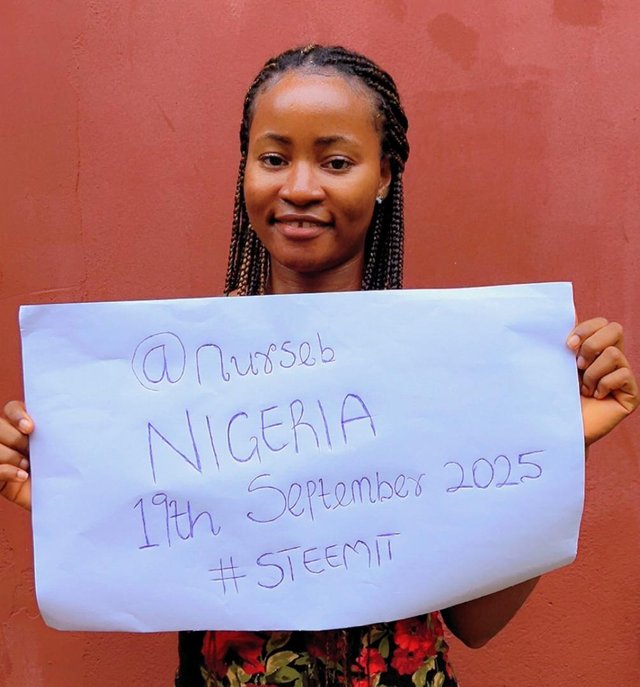 @nurseb
NIGERIA
19th September 2025
#STEEMIT